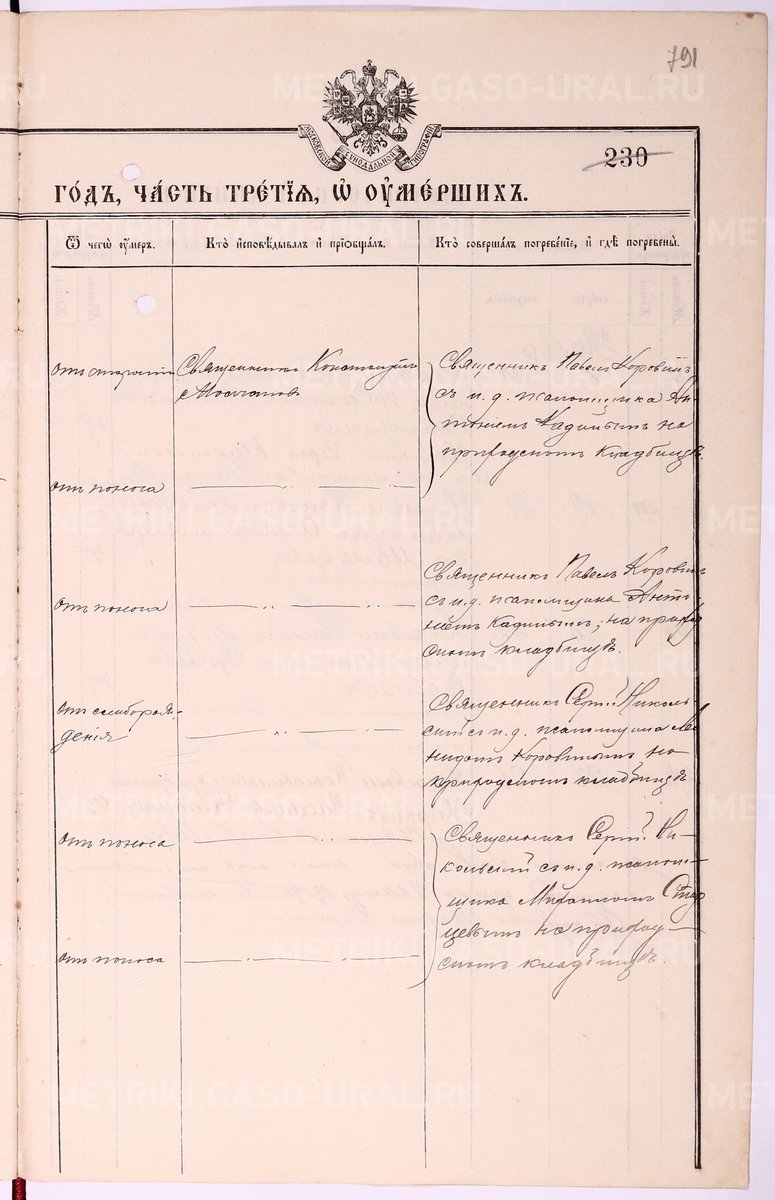 791
МОСКОВСКОЙ СѴНОДАЛЬНОЙ ТИПОГРАФІИ
230
ГО́ДЪ, ЧА́СТЬ ТРЕ́ТЇѦ, Ѡ ОУ҆МЕ́РШИХЪ.
Ѿ чегѡ̀ оу҆́меръ.
Кто̀ и҆сповѣ́дывалъ и҆ прїѡбща́лъ.
Кто̀ соверша́лъ погребе́нїе, и҆ гдѣ̀ погребены̀.
отъ старости
Священникъ Константинъ
Молчановъ
Священникъ Павелъ Коровинъ
съ и. д. псаломщика Ан-
тоніемъ на
приходскомъ кладбищѣ.
отъ поноса
отъ поноса
Священникъ Павелъ Коровинъ
съ и. д. псаломщика Анто-
ніемъ на приход
скомъ кладбищѣ.
отъ слаборож-
денія
Священникъ Сергій Николь-
скій съ и. д. псаломщика Ле
нидомъ Коровинымъ на
приходскомъ кладбищѣ
отъ поноса
Священникъ Сергій Ни-
кольскій съ и. д. псалом-
щика Михаиломъ Стар
цевымъ на приход-
скомъ кладбищѣ.
отъ поноса
METRIKI.GASO-URAL.RU